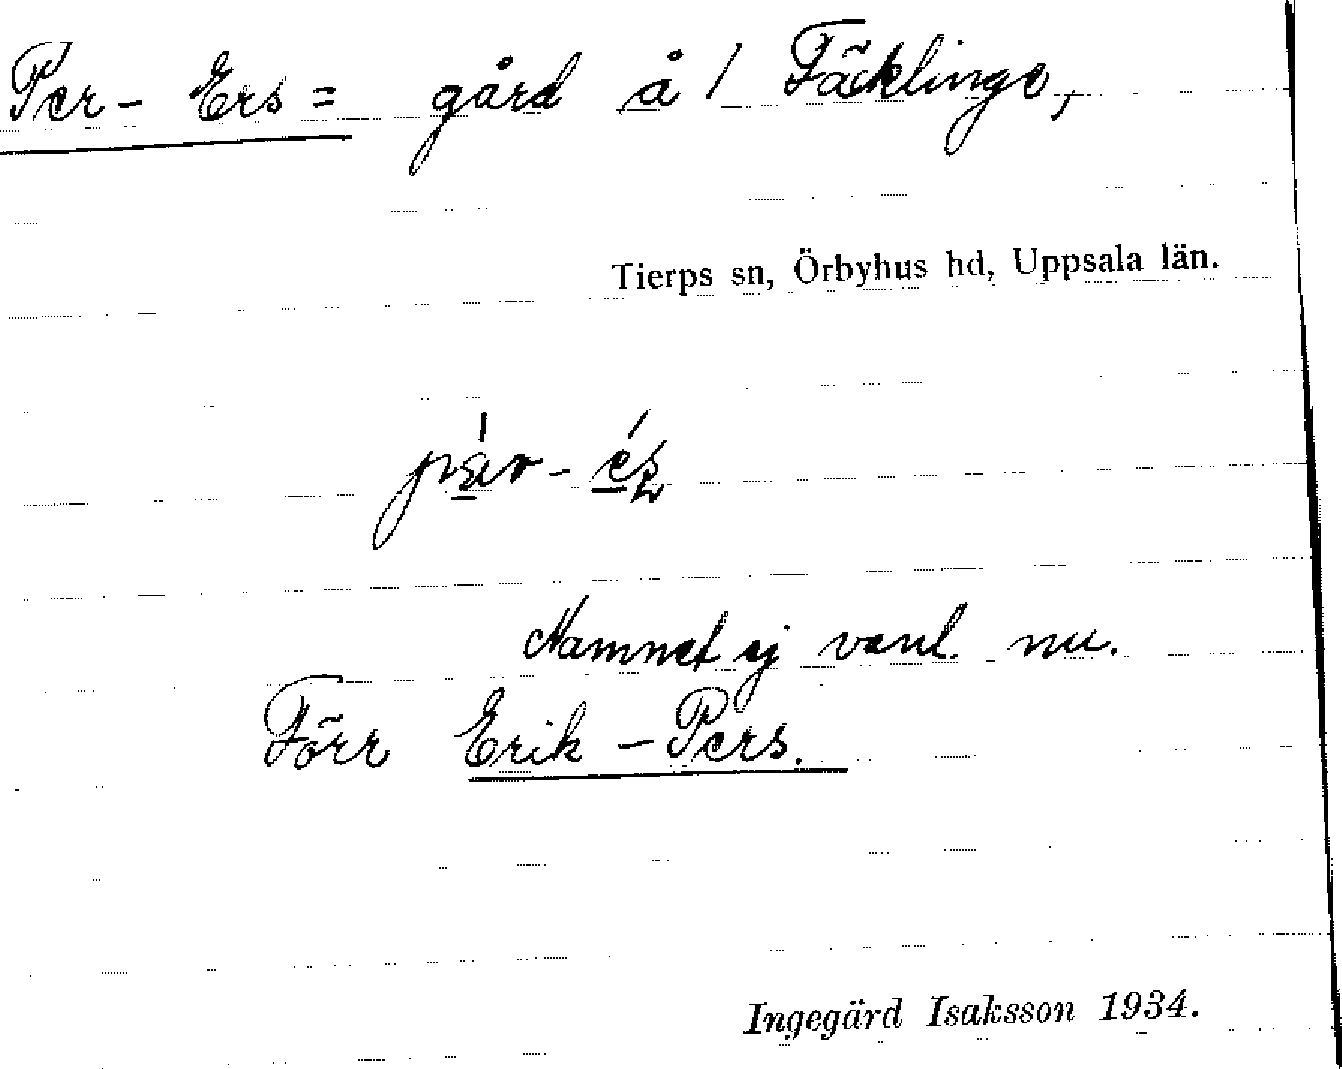 Per-Ers = gård å 1 Fäcklinge,
Tierps sn, Örbyhus hd, Uppsala län.
Namnet ej vanl. nu.
Förr Erik-Pers.
Ingegärd Isaksson 1934.